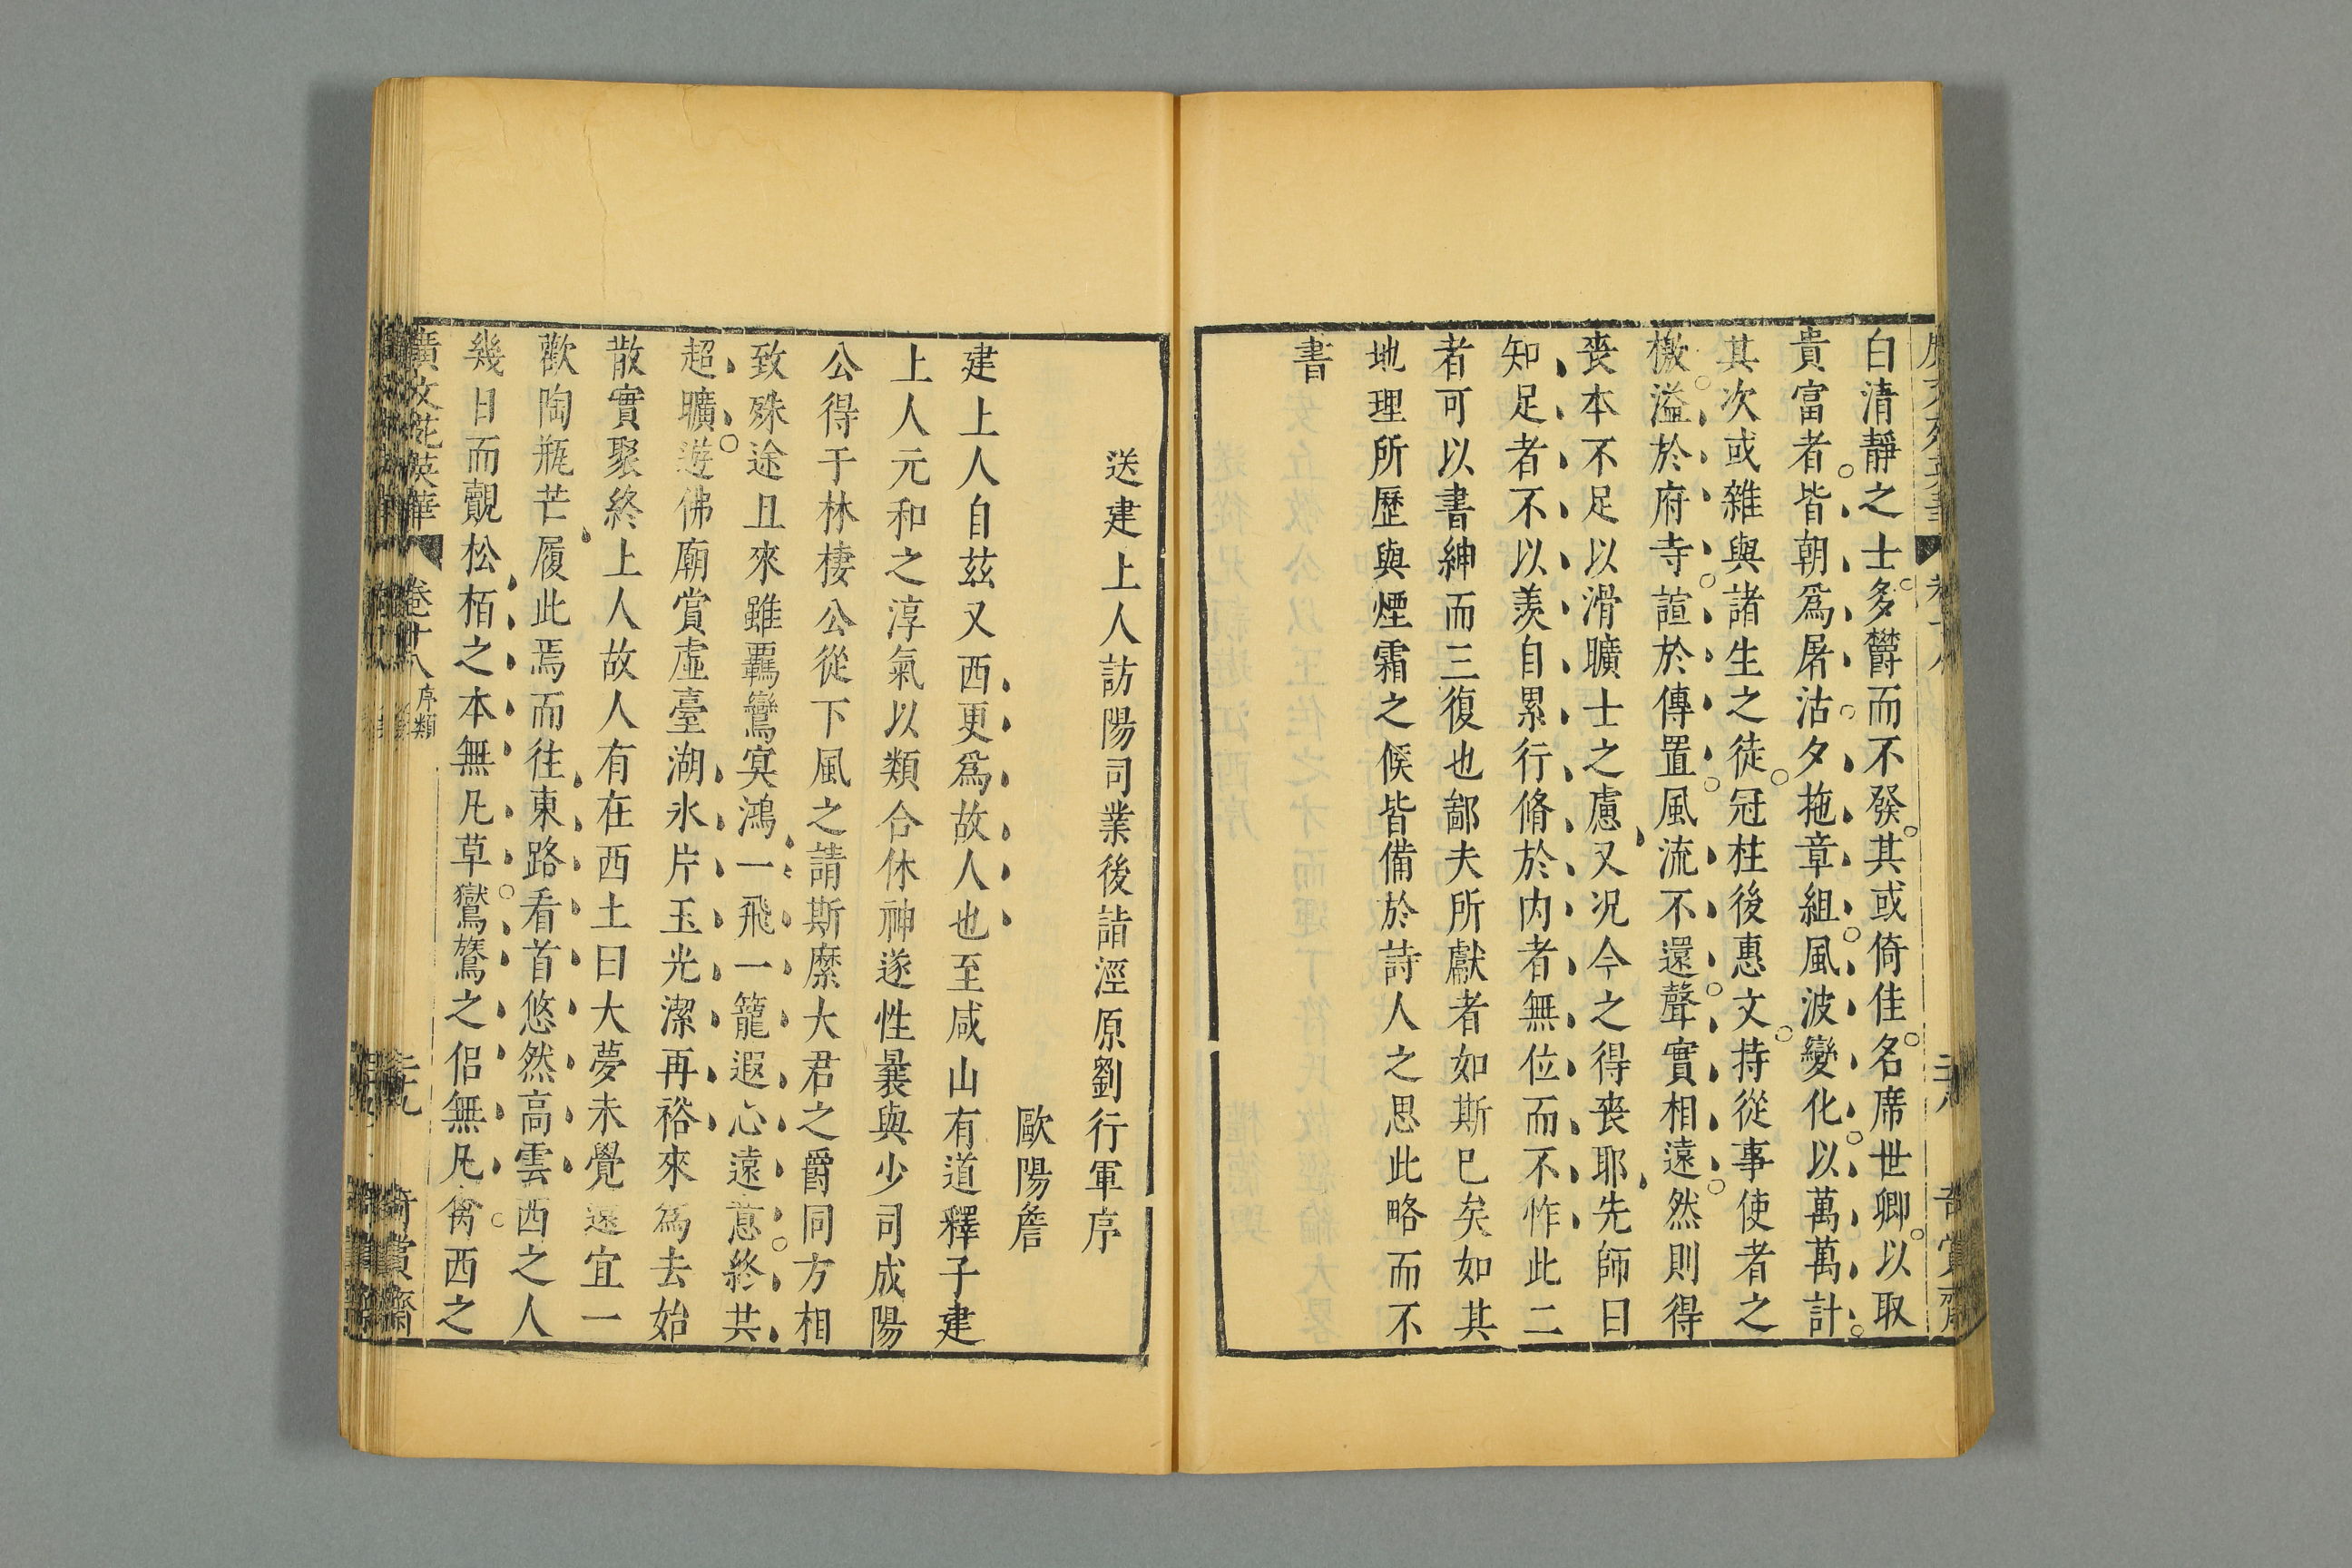 白清靜之士多欝而不發其或倚佳名席世卿以取
貴富者皆朝爲屠沽夕拖章組風波變化以萬萬計
其次或雜與諸生之徒冠柱後惠文持從事使者之
檄溢於府寺諠於傳置風流不還聲實相遠然則得
喪本不足以滑曠士之慮又况今之得喪耶先師曰
知足者不以羨自累行脩於内者無位而不怍此二
者可以書紳而三復也鄙夫所獻者如斯巳矣如其
地理所歷與煙霜之候皆備於詩人之思此略而不
書
送建上人訪陽司業後詣涇原劉行軍序
歐陽詹
建上人自茲又西更爲故人也至咸山有道釋子建
上人元和之淳氣以類合休神遂性曩與少司成陽
公得于林棲公從下風之請斯縻大君之爵同方相
致殊途且來雖覊鸞寞鴻一飛一籠遐心遠意終共
超曠遊佛廟賞虛臺湖氷片玉光潔再裕來爲去始
散實聚終上人故人有在西土曰大夢未覺還宜一
歡陶瓶芒履此焉而往東路看首悠然高雲西之人
幾日而覿松栢之本無凡草鸑鷟之侣無凡禽西之
廣文苑英華 卷十八 序類 奇賞齋